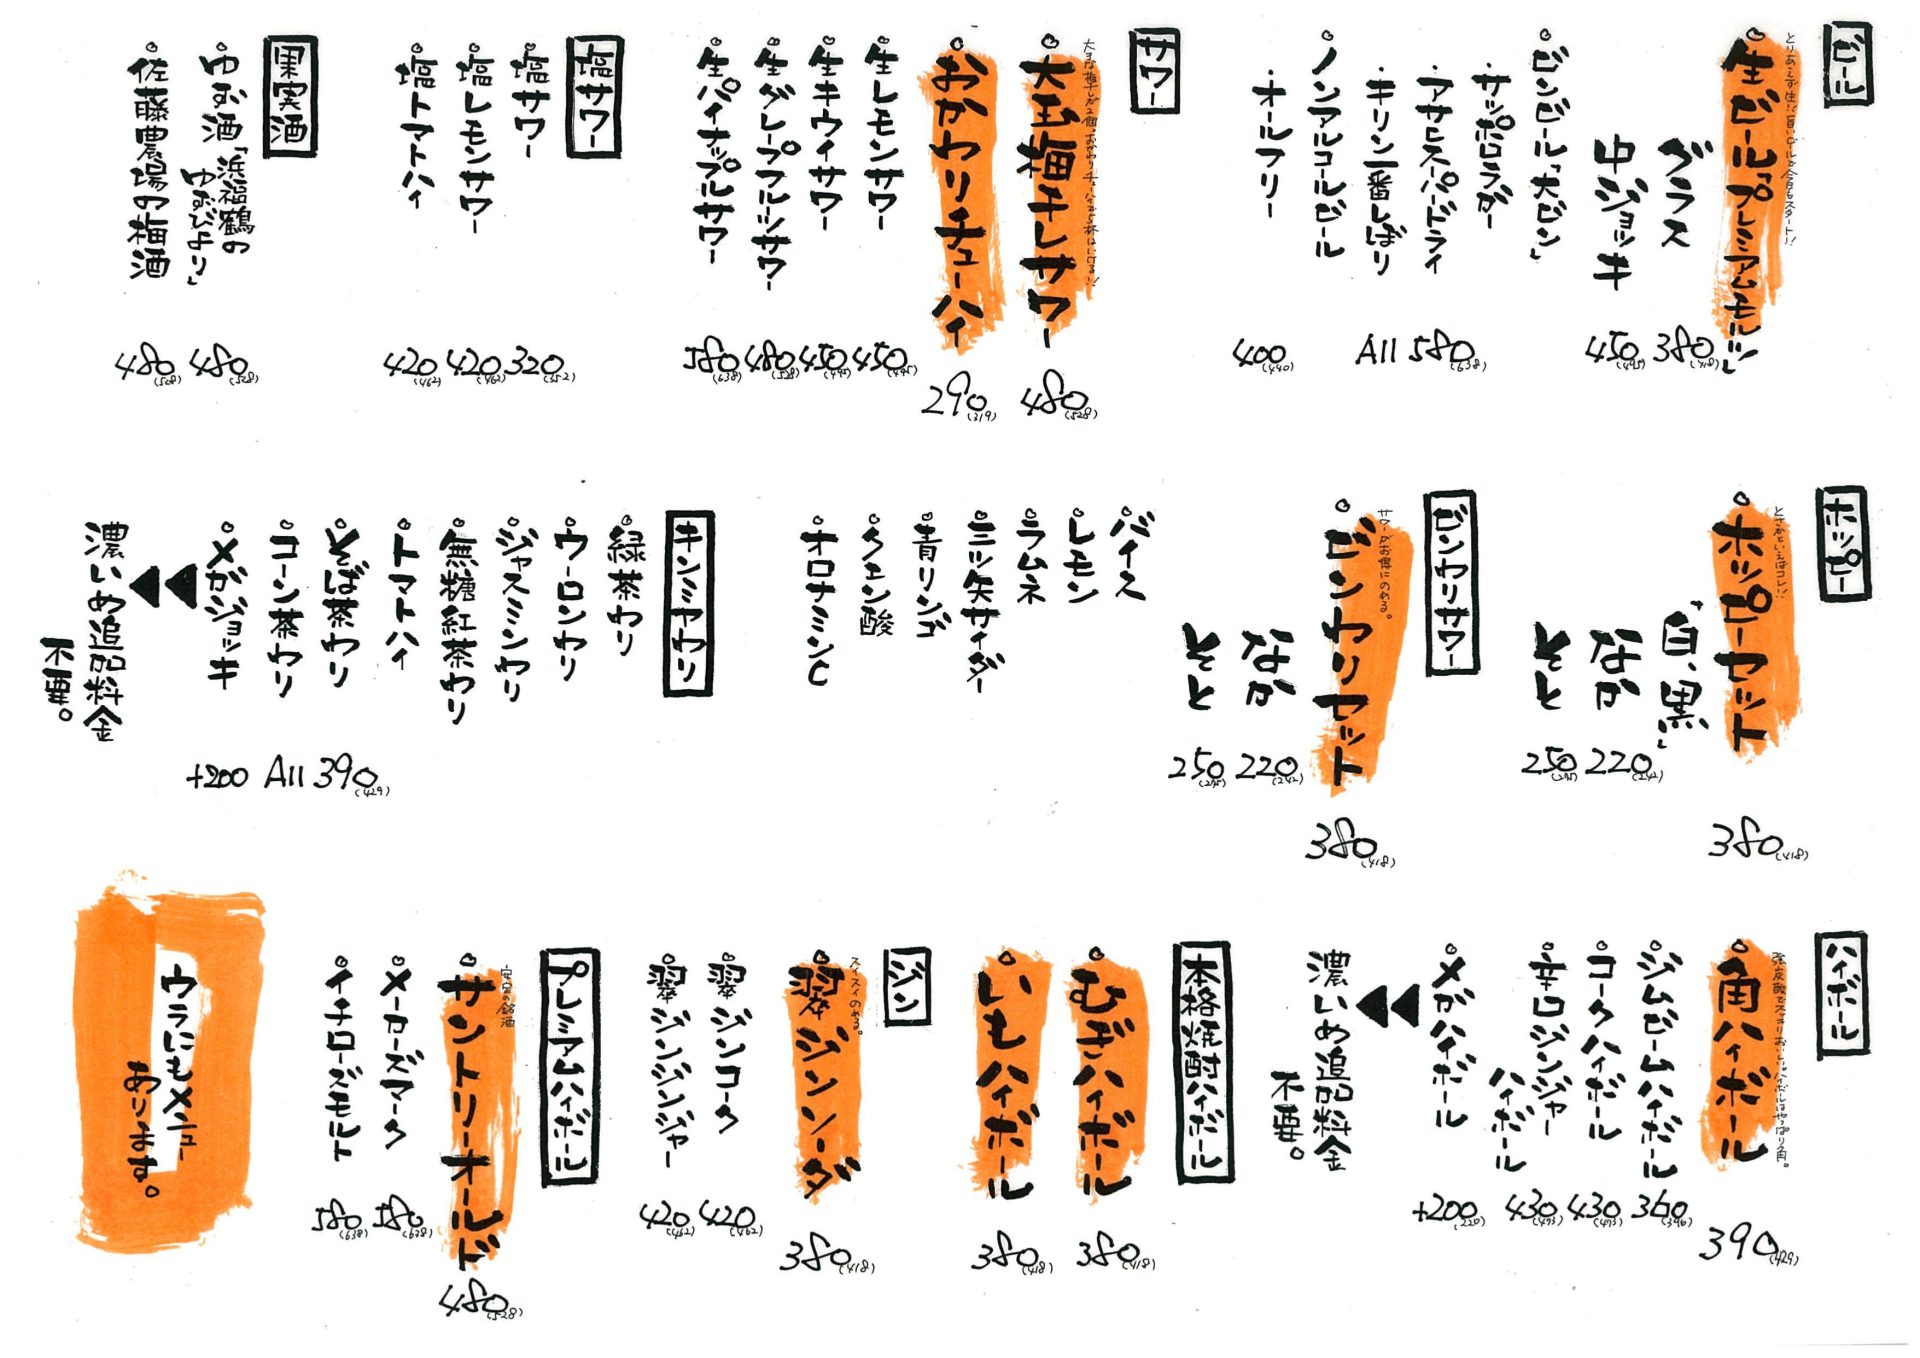 ビール
とりあえず生!!一日目いビールで今日もスタート!!
生ビール「プレミアムモルツ」
380(418)
グラス
中ジョッキ
450(495)
ビンビール「大ビン」
・サッポロラガー
・アサヒスーパードライ
・キリン一番しぼり
All 580(638)
ノンアルコールビール
・オールフリー
400(440)
サワー
大玉梅干しサワー
480(528)
おかわりチューハイ
290(319)
生レモンサワー
450(495)
生キウイサワー
450(495)
生グレープフルーツサワー
480(528)
生パイナップルサワー
580(638)
塩サワー
塩サワー
320(352)
塩レモンサワー
420(462)
塩トマトハイ
420(462)
果実酒
ゆず酒「浜福鶴の
ゆずびより」
480(528)
佐藤農場の梅酒
480(528)
ホッピー
ときわといえばコレ!!
ホッピーセット
380(418)
「白、黒」
なか
220(242)
そと
250(275)
ビンワリサワー
ビンワリセット
380(418)
なか
220(242)
そと
250(275)
バイス
レモン
ラムネ
三ツ矢サイダー
青リンゴ
クエン酸
オロナミンC
キンミヤワリ
緑茶ワリ
ウーロンワリ
ジャスミンワリ
無糖紅茶ワリ
トマトハイ
そば茶ワリ
コーン茶ワリ
All 390(429)
メガジョッキ
+200
濃いめ追加料金
不要。
ハイボール
強炭酸でスッキリおいしいハイボールはやっぱり角。
角ハイボール
390(429)
ジムビームハイボール
360(396)
コークハイボール
430(473)
辛口ジンジャー
ハイボール
430(473)
メガハイボール
+200(220)
濃いめ追加料金
不要。
本格焼酎ハイボール
むぎハイボール
380(418)
いもハイボール
380(418)
ジン
スイスイのめる。
翠ジンソーダ
380(418)
翠ジンコーク
420(462)
翠ジンジンジャー
420(462)
プレミアムハイボール
安定の銘酒
サントリーオールド
480(528)
メーカーズマーク
580(638)
イチローズモルト
580(638)
ウラにもメニュー
あります。